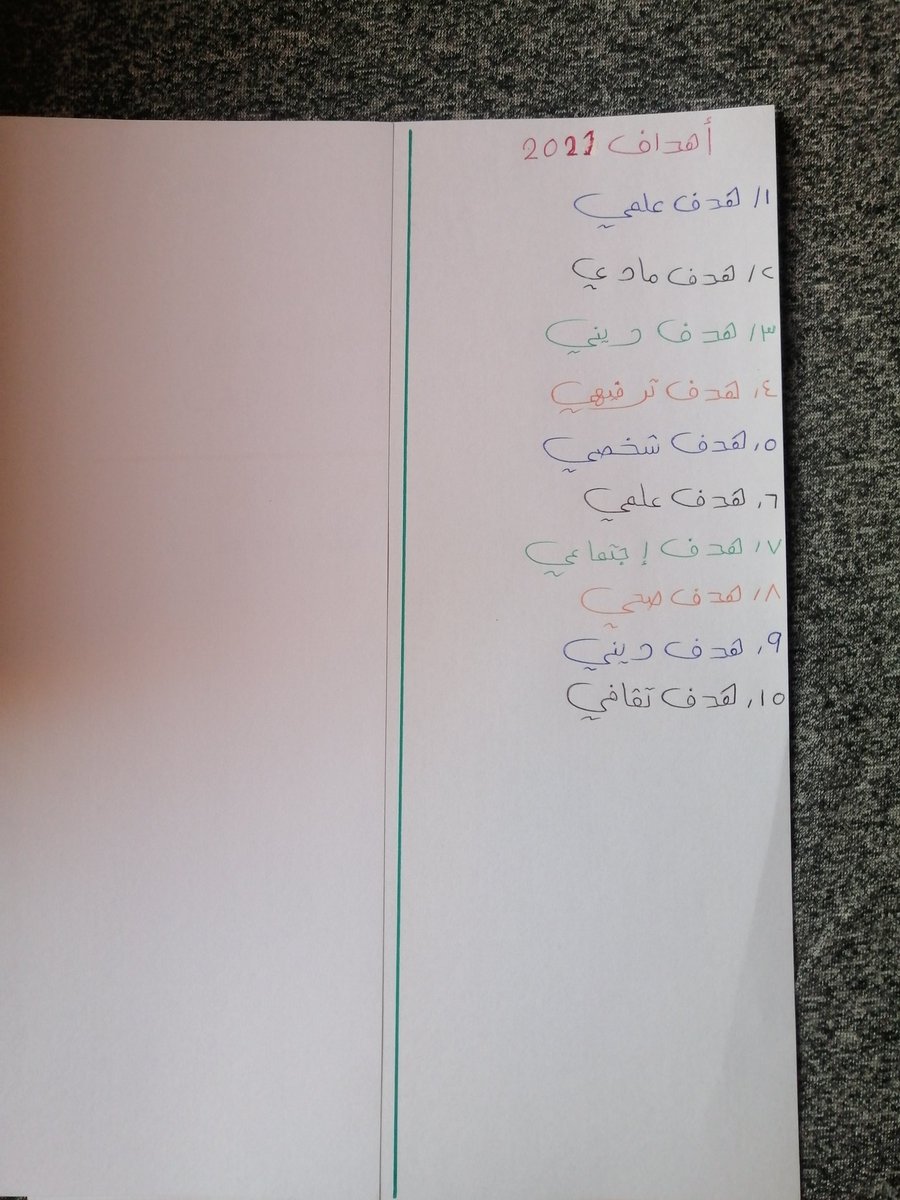 أهداف 2021
١/ هدف علمي
٢/ هدف مادي
٣/ هدف ديني
٤/ هدف ترفيهي
٥/ هدف شخصي
٦/ هدف علمي
٧/ هدف إجتماعي
٨/ هدف صحي
٩/ هدف ديني
١٥/ هدف ثقافي